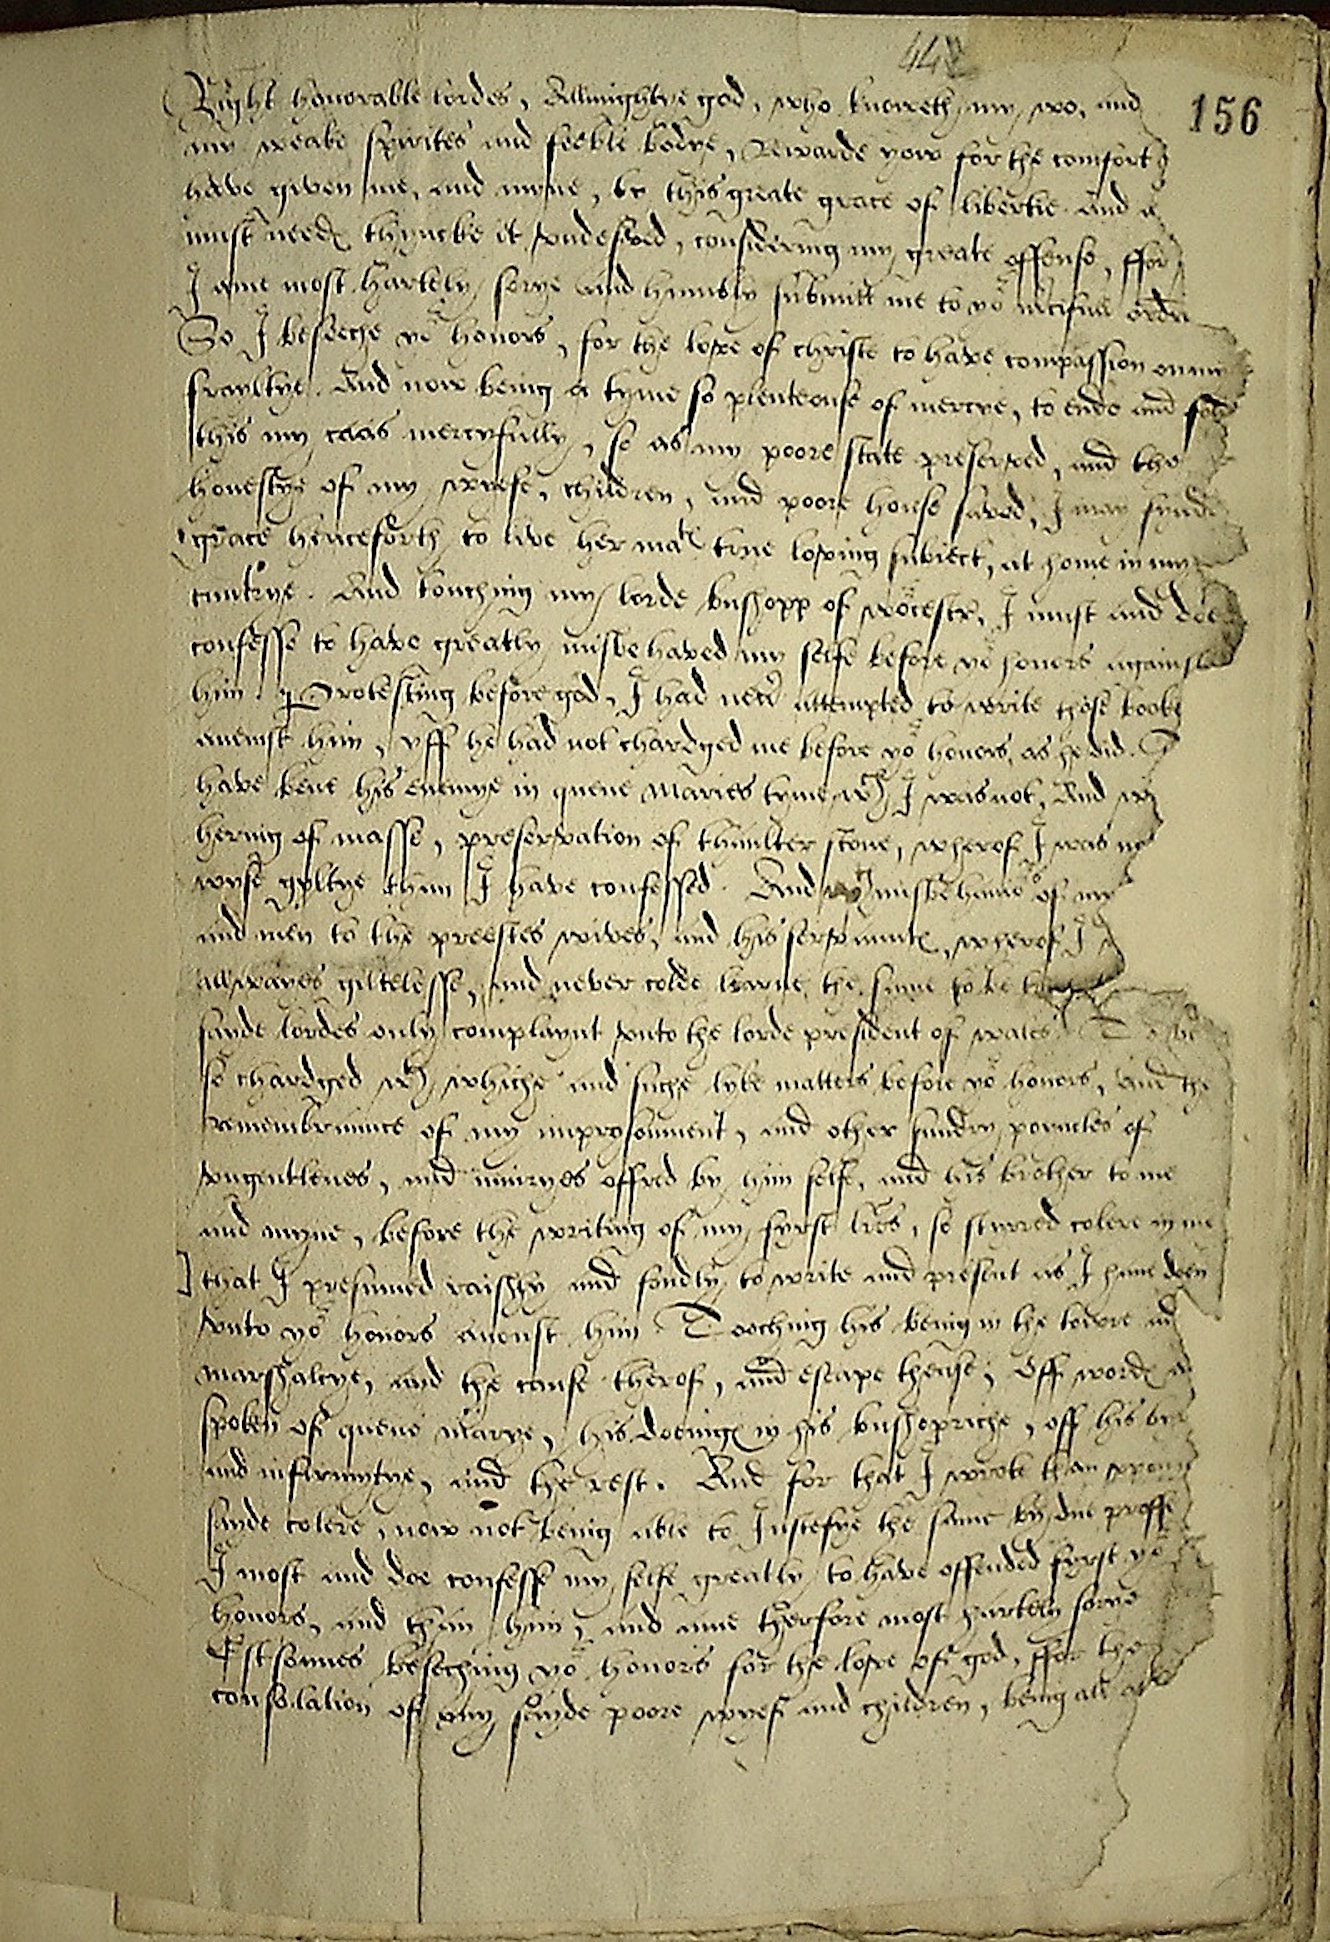 448
156
Right honorable lordes, Allmightye god, who knoweth my wo, and
my weake spirites and feeble bodye, Rewarde yow for the comfort
have given me, and myne, be this greate grace of libertie. And
must needs thyncke it undeserved, considering my greate offense, ffor
I ame most hartely sorye and humbly submitt me to yor mcifull order
So I beseeche yor honors, for the love of christe to have compassion on my
frayltye. And now being a tyme so plenteouse of mercye, to ende and
this my caas mercyfully, so as my poore state preserved, and the
honestye of my wyefe, children, and poore house saved, I may fynde
grace henceforth to live her mats true loving subiect, at home in my
cuntrye. And touching my lorde busshopp of worcestr, I must and doe
confesse to have greatly misbehaved my selfe before yor honors against
him. Protesting before god, I had never attempted to write those books
aneinst him, yff he had not chardged me before yor honors, as he did. T
have bene his enemye in quene Maries tyme wch I was not, And wt
hering of masse, preservation of thaulter stone, wherof I was no
wyse gyltye than I have confessed. And wt misbehavior of my
and men to the preestes wives, and his servaunts, wherof I
allwayes giltelesse, and never colde learne the same to be
sayde lordes only complaynt unto the lorde president of wales. To be
so chardged wt whiche and suche lyke matters before yor honors, and the
remembraunce of my imprysonment, and other sundry poynctes of
ungentlenes, and iniuryes offred by him selfe, and his brother to me
and myne, before the writing of my fyrst lres, so sturred colere in me
that I presumed raishly and fondly to write and present as I have doen
unto yor honors aneinst him. Tooching his being in the towre and
marshalcye, and the cause therof, and escape thense, Off words
spoken of quene Marye, his doeings in his busshopriche, off his
and infirmytye, and the rest. And for that I wrote than upon
sayde colere, now not being able to Iustefye the same by due proffe
I most and doe confesse my selfe greatly to have offended fyrst yor
honors, and than him, and ame therfore most hartely sorye
Eftsonnes beseching yor honors for the love of god, ffor the
consolation of my sayde poore wyefe and children, being all